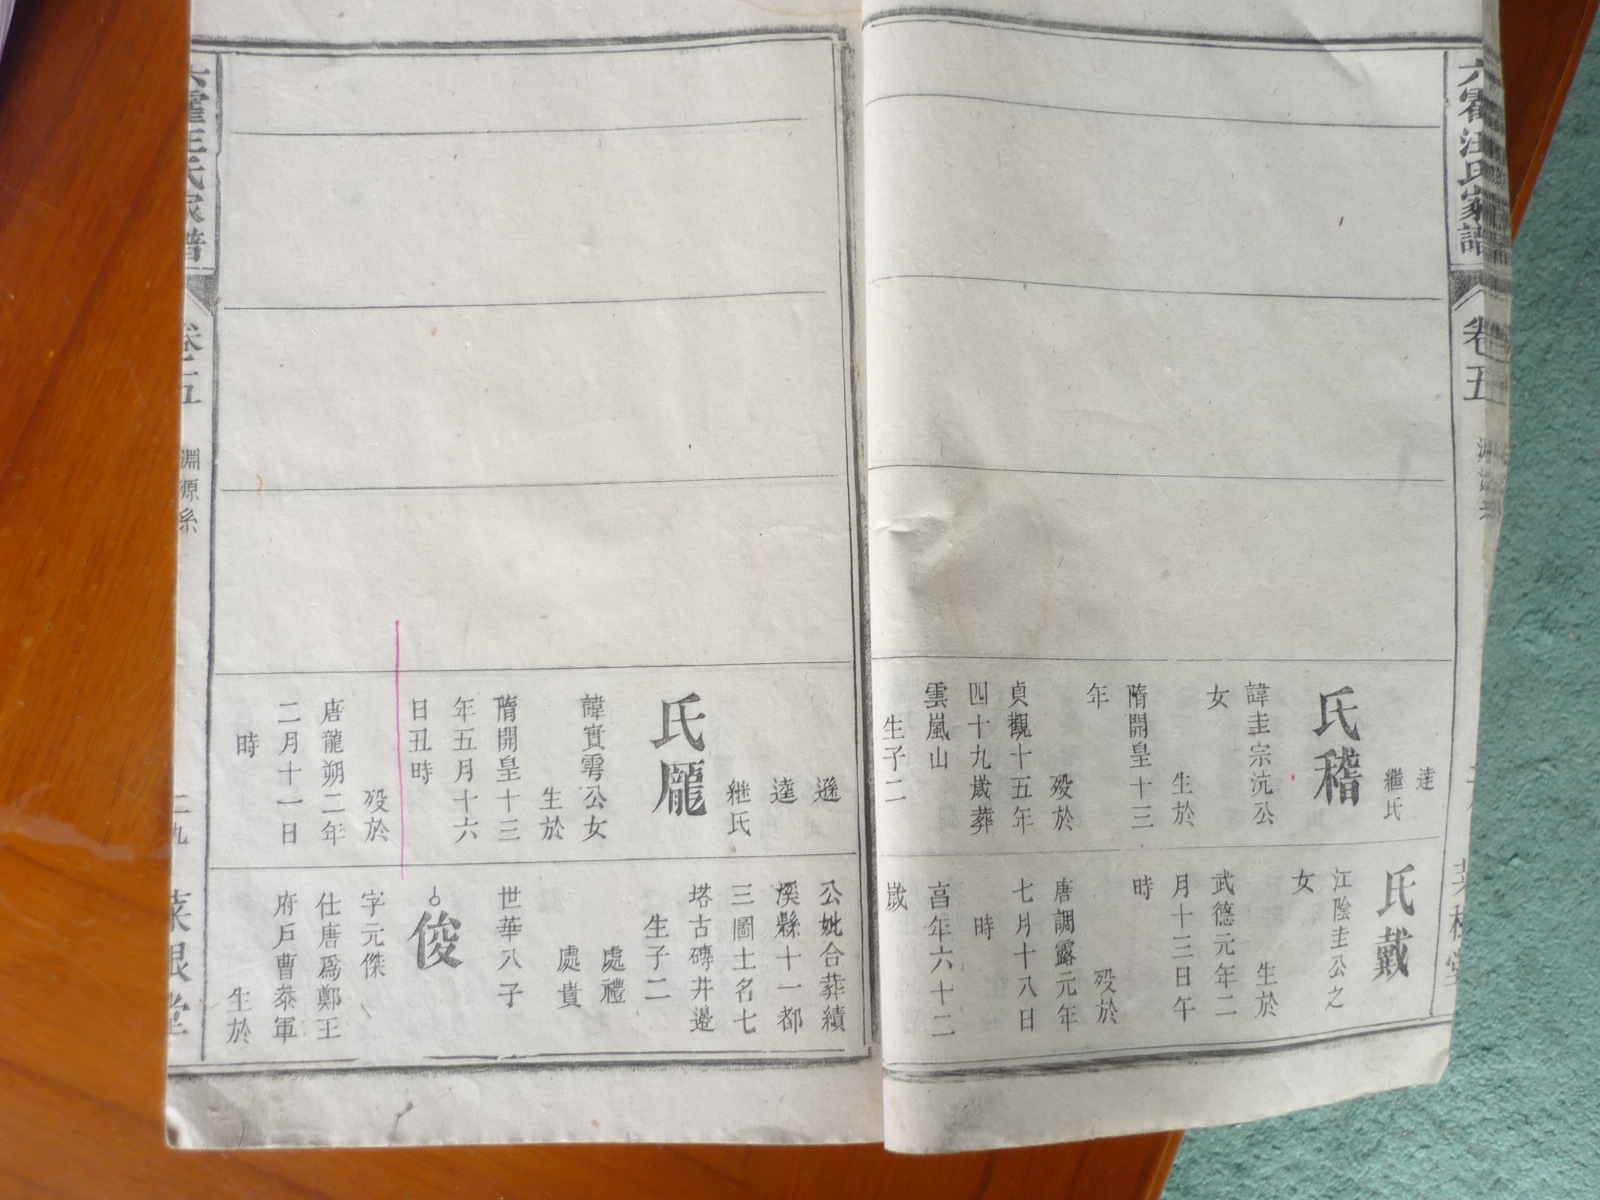 六霍汪氏家譜
卷五
逹
繼氏
氏稽
諱圭宗沆公
女
生於
隋開皇十三
年
歿於
貞觀十五年
四十九歲葬
雲嵐山
生子二
氏戴
江陰圭公之
女
生於
武德元年二
月十三日午
時
歿於
唐調露元年
七月十八日
時
亯年六十二
歲
遜
逹
継氏
氏龐
諱實雩公女
生於
隋開皇十三
年五月十六
日丑時
歿於
唐龍朔二年
二月十一日
時
公妣合葬績
溪縣十一都
三圖土名七
塔古磚井邊
生子二
處禮
處貴
世華八子
俊
字元傑
仕唐爲鄭王
府戶曹叅軍
生於
六霍汪氏家譜
卷五
淵源系
二九
菜根堂